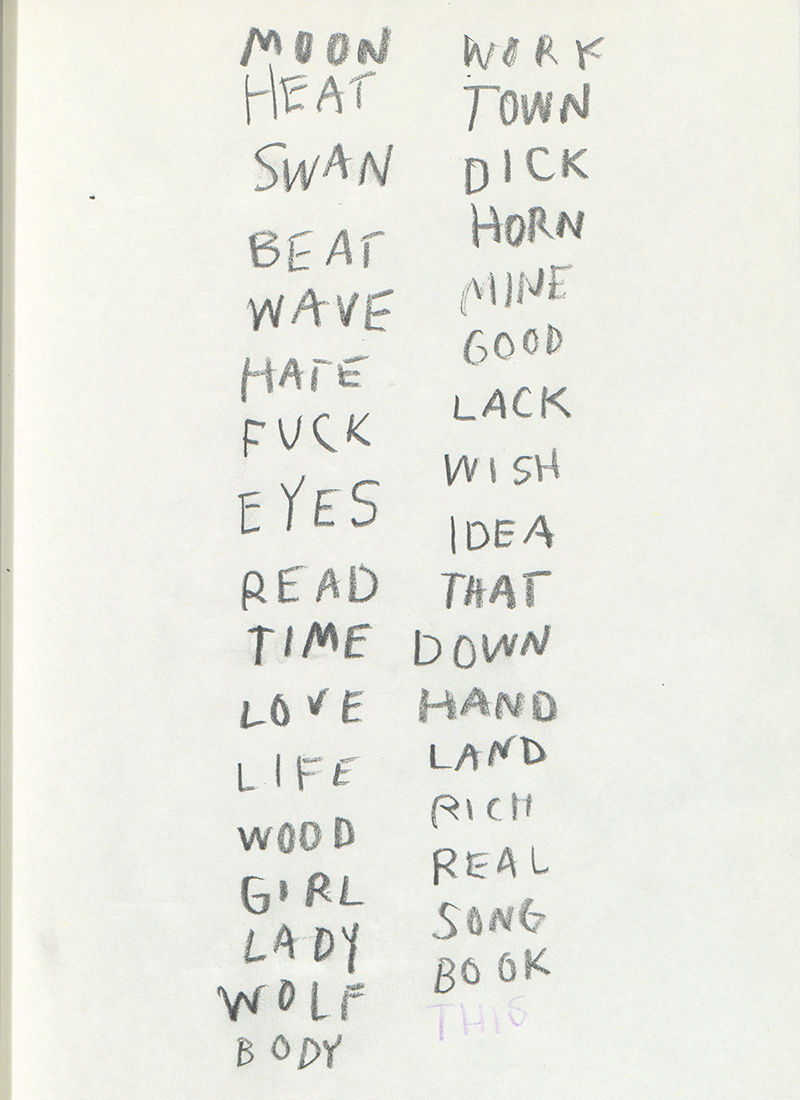 MOON
HEAT
SWAN
BEAT
WAVE
HATE
FUCK
EYES
READ
TIME
LOVE
LIFE
WOOD
GIRL
LADY
WOLF
BODY
WORK
TOWN
DICK
HORN
MINE
GOOD
LACK
WISH
IDEA
THAT
DOWN
HAND
LAND
RICH
REAL
SONG
BOOK
THIS